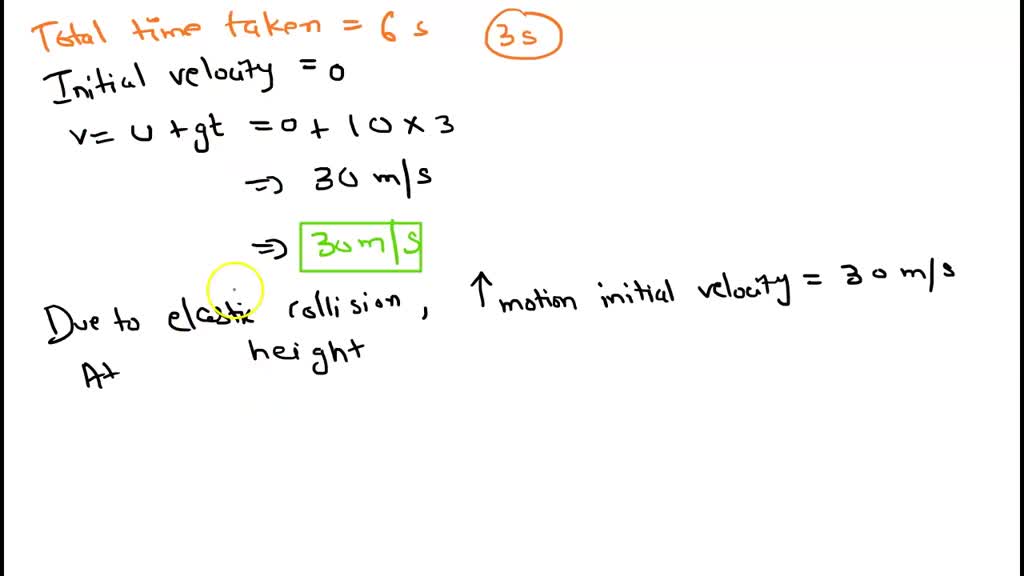 Total time taken = 6 s 3s
Initial velocity = 0
v = u + gt = 0 + 10 × 3
⇒ 30 m/s
⇒ 30m/s
Due to elastic collision, ↑ motion initial velocity = 30 m/s
At height